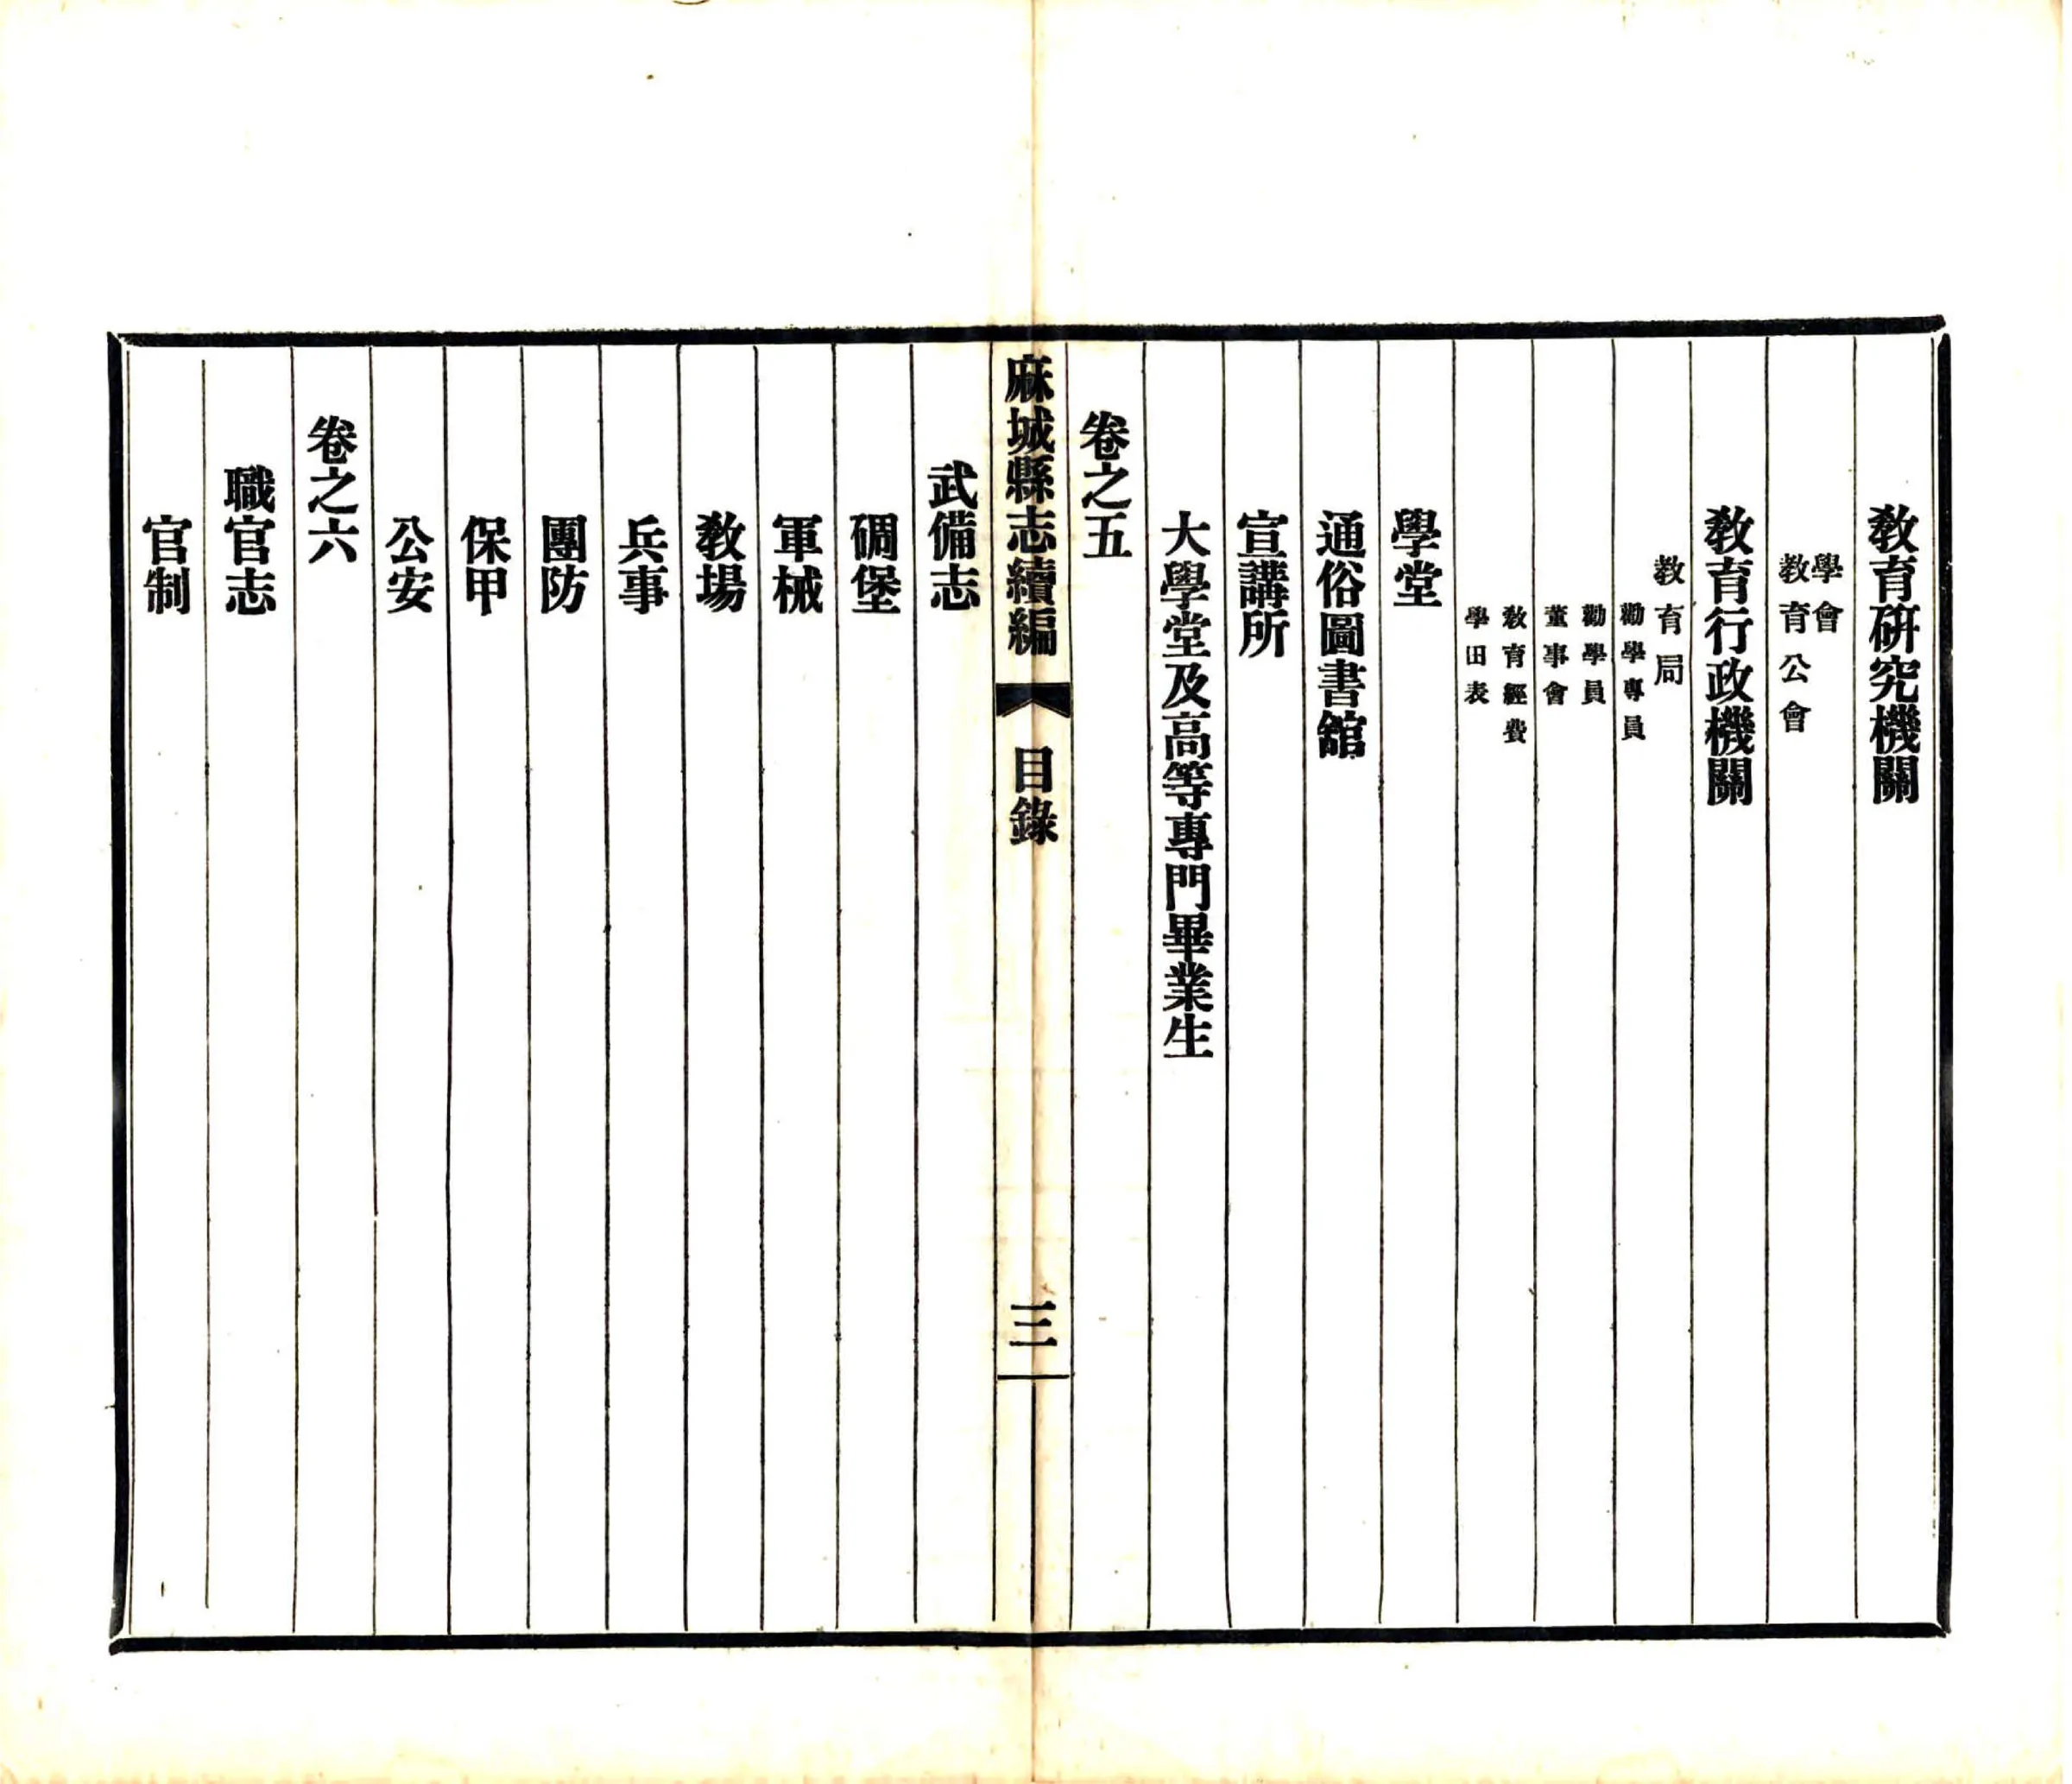 教育研究機關
學會
教育公會
教育行政機關
教育局
勸學專員
勸學員
董事會
教育經費
學田表
學堂
通俗圖書館
宣講所
大學堂及高等專門畢業生
卷之五
麻城縣志續編 目錄 三
武備志
碉堡
軍械
教場
兵事
團防
保甲
公安
卷之六
職官志
官制